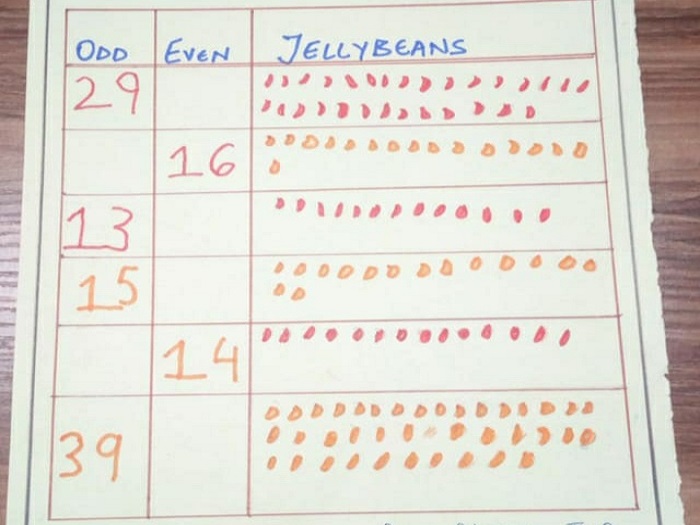 ODD EVEN JELLYBEANS
29
16
13
15
14
39